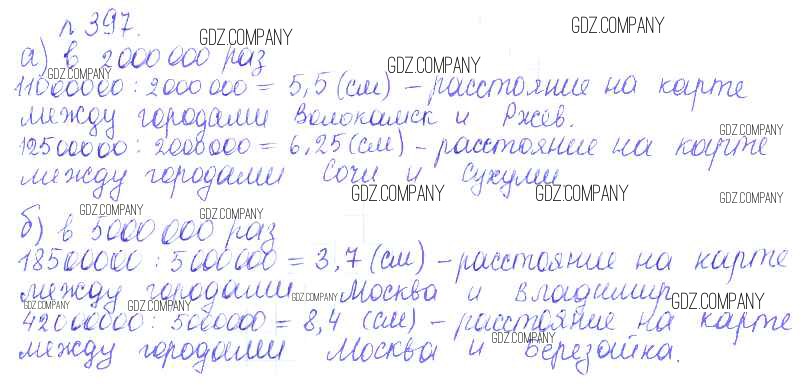 № 397.
GDZ.COMPANY GDZ.COMPANY
а) в 2000 000 раз
GDZ.COMPANY
GDZ.COMPANY
11000000 : 2000 000 = 5,5 (см) – расстояние на карте
между городами Волокамск и Ржев.
GDZ.COMPANY
12500000 : 2000000 = 6,25 (см) – расстояние на карте
между городами Сочи и Сухуми
GDZ.COMPANY GDZ.COMPANY GDZ.COMPANY
GDZ.COMPANY GDZ.COMPANY
б) в 5000 000 раз
18500000 : 5000000 = 3,7 (см) – расстояние на карте
между городами Москва и Владимир
GDZ.COMPANY GDZ.COMPANY GDZ.COMPANY GDZ.COMPANY
42000000 : 5000000 = 8,4 (см) – расстояние на карте
GDZ.COMPANY
между городами Москва и Березайка.